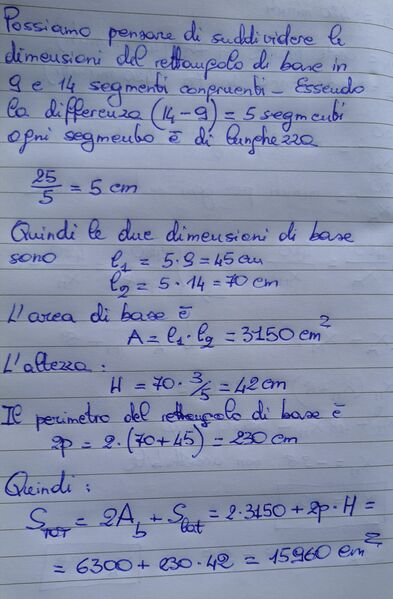 Possiamo pensare di suddividere le
dimensioni del rettangolo di base in
9 e 14 segmenti congruenti - Essendo
la differenza (14-9) = 5 segmenti
ogni segmento è di lunghezza
25/5 = 5 cm
Quindi le due dimensioni di base
sono l1 = 5·9 = 45 cm
l2 = 5·14 = 70 cm
L'area di base è
A = l1·l2 = 3150 cm²
L'altezza:
H = 70·3/5 = 42 cm
Il perimetro del rettangolo di base è
2p = 2·(70+45) = 230 cm
Quindi:
S_TOT = 2A_b + S_lat = 2·3150 + 2p·H =
= 6300 + 230·42 = 15960 cm²